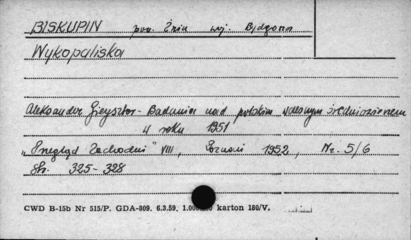 BISKUPIN pow. Żnin woj. Bydgoszcz
Wykopaliska
Aleksander Gieysztor - Badania nad polskim wczesnym średniowieczem
w roku 1951
"Przegląd Zachodni" VIII, Poznań 1952, Nr. 5/6
Str. 325-328
CWD B-15b Nr 515/P. GDA-809. 6.3.59. 1.000 karton 180/V.